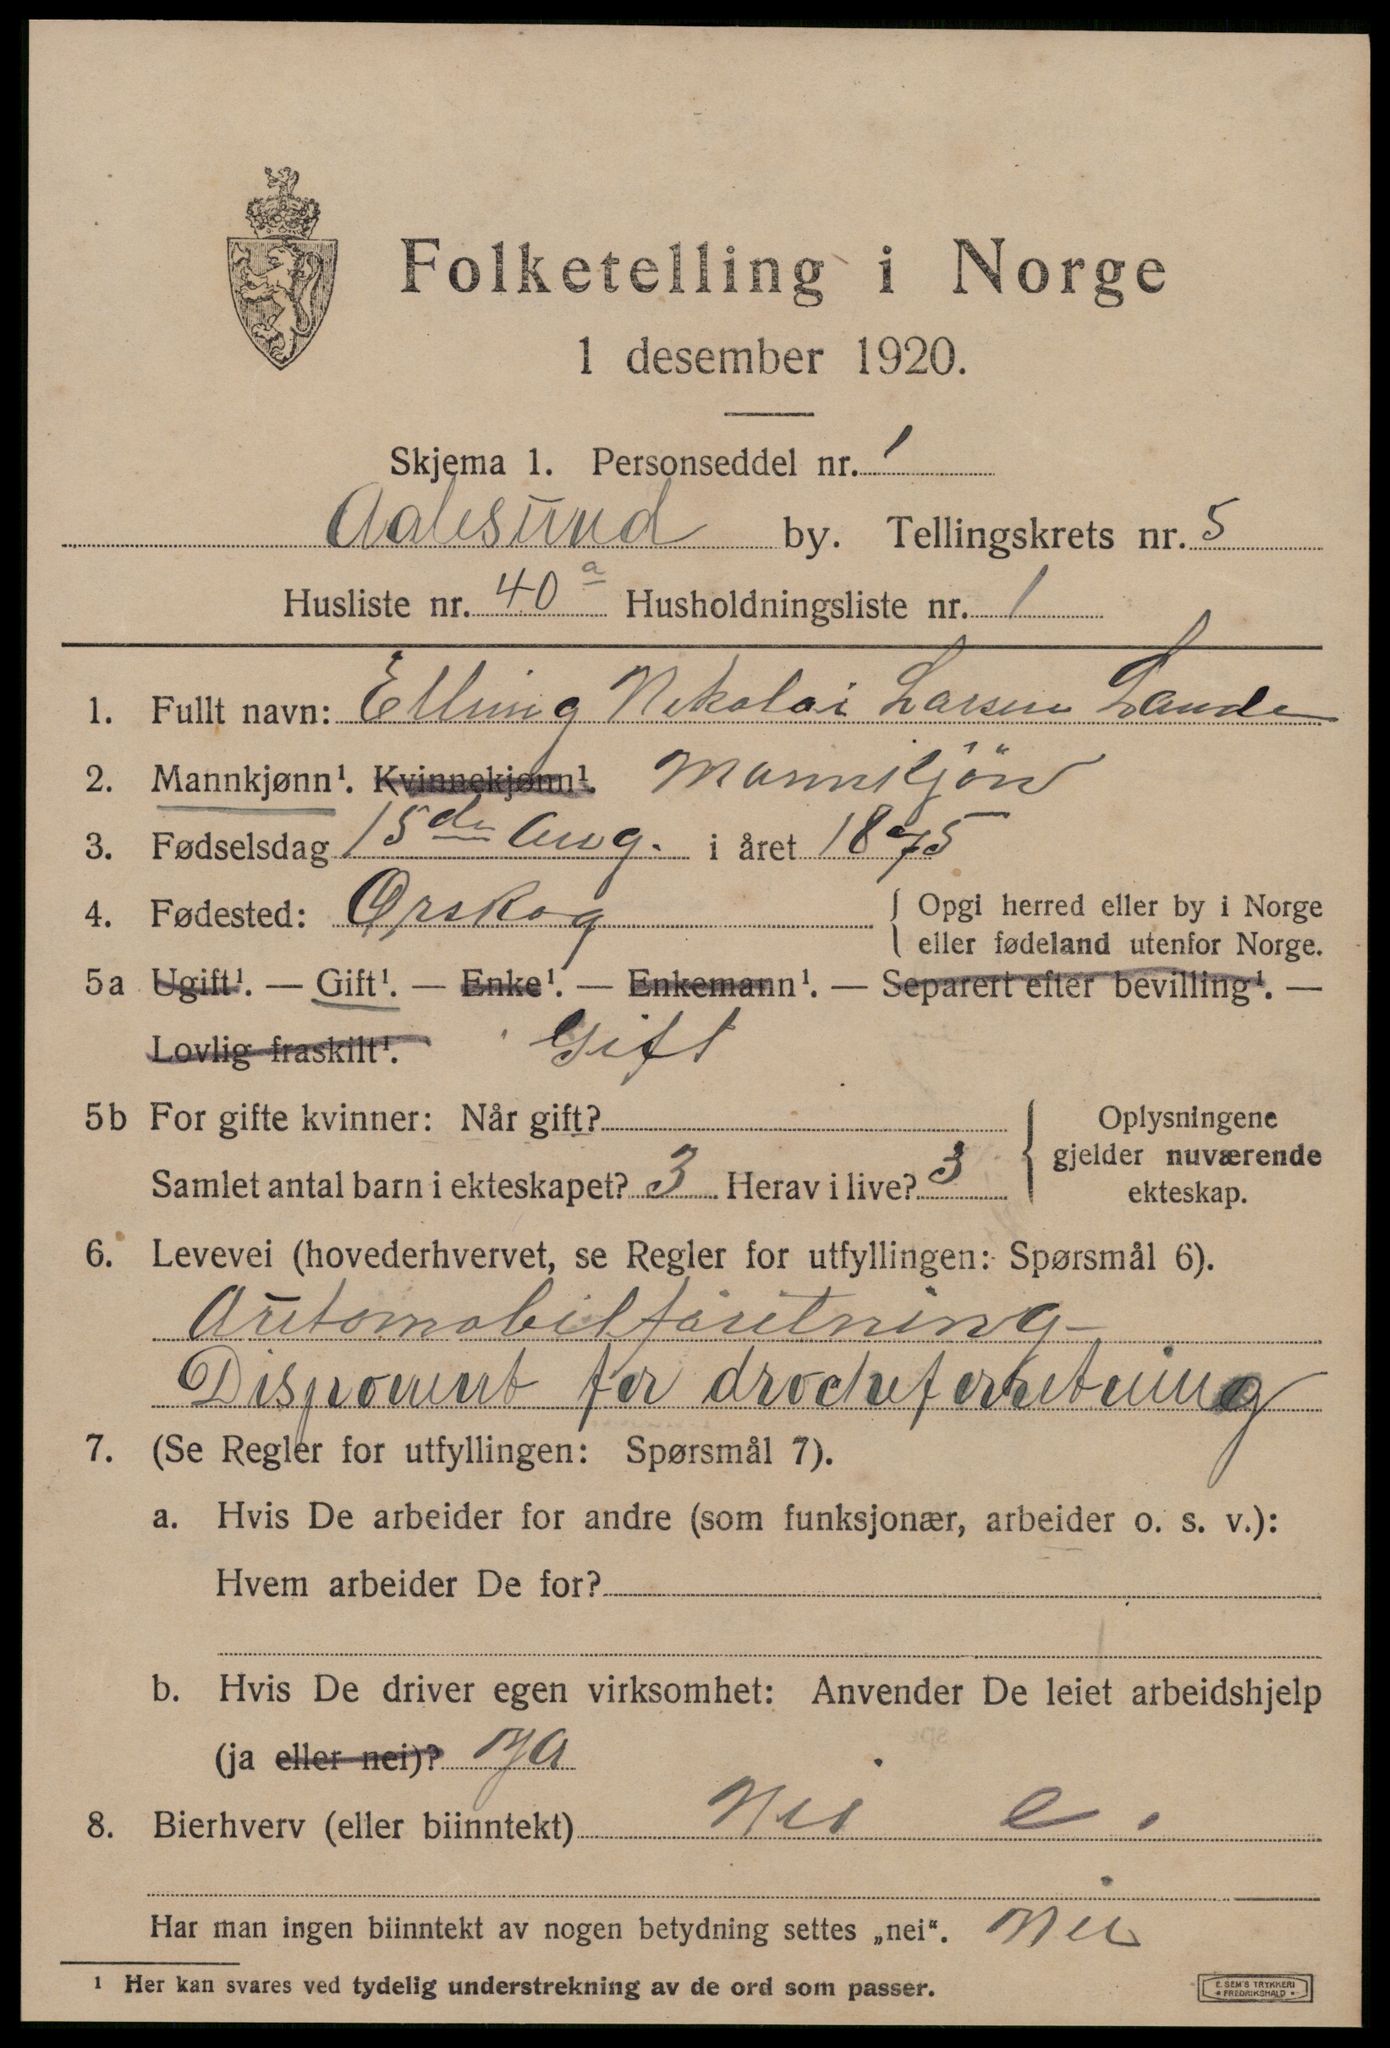 Folketelling i Norge
1 desember 1920.
Skjema 1. Personseddel nr. 1
Aalesund by. Tellingskrets nr. 5
Husliste nr. 40a Husholdningsliste nr. 1
1. Fullt navn: Elling Nikolai Larsen Lande
2. Mannkjønn¹. Kvinnekjønn¹. Mannkjönn
3. Fødselsdag 15de Aug. i året 1875
4. Fødested: Ørskog { Opgi herred eller by i Norge
eller fødeland utenfor Norge.
5a Ugift¹. — Gift¹. — Enke¹. — Enkemann¹. — Separert efter bevilling¹. —
Lovlig fraskilt¹. Gift
5b For gifte kvinner: Når gift?
Samlet antal barn i ekteskapet? 3 Herav i live? 3
Oplysningene
gjelder nuværende
ekteskap.
6. Levevei (hovederhvervet, se Regler for utfyllingen: Spørsmål 6).
Automobilforretning
Disponent for drocheforretning
7. (Se Regler for utfyllingen: Spørsmål 7).
a. Hvis De arbeider for andre (som funksjonær, arbeider o. s. v.):
Hvem arbeider De for?
b. Hvis De driver egen virksomhet: Anvender De leiet arbeidshjelp
(ja eller nei)? ja
8. Bierhverv (eller biinntekt) Nei e.
Har man ingen biinntekt av nogen betydning settes „nei“. Nei
¹ Her kan svares ved tydelig understrekning av de ord som passer.
E. SEM'S TRYKKERI
FREDRIKSHALD